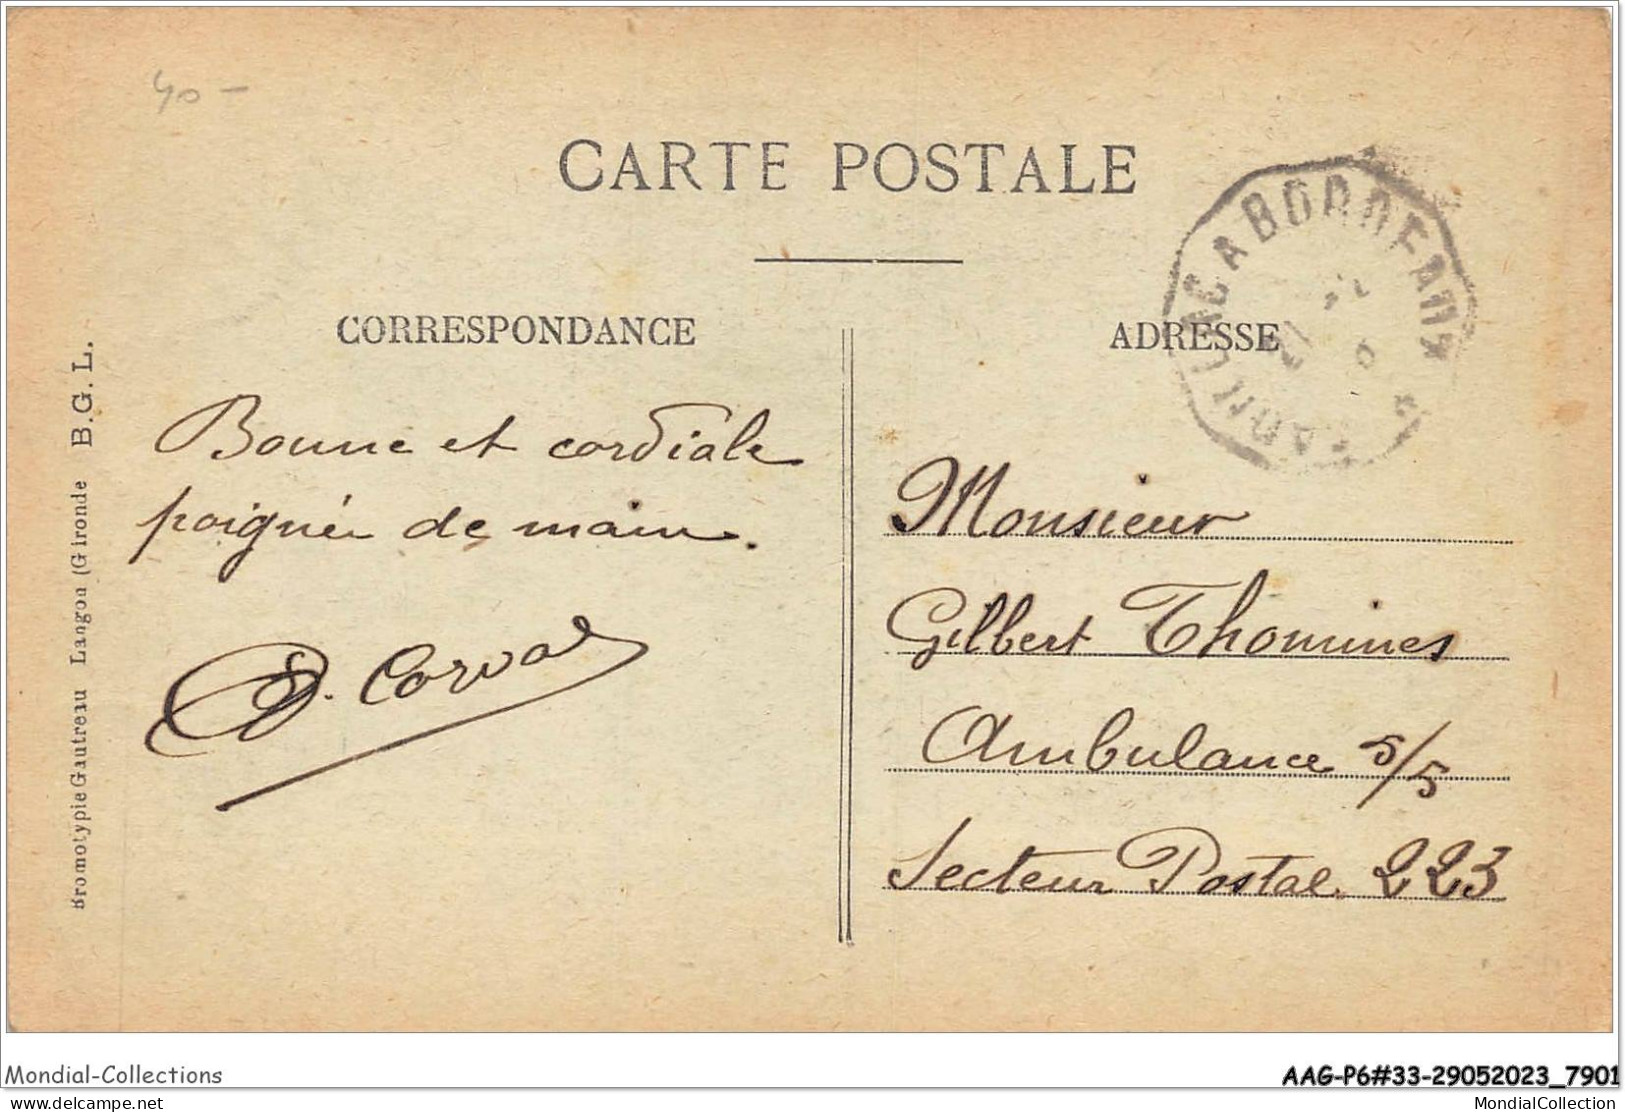 40-
CARTE POSTALE
CADILLAC A BORDEAUX
CORRESPONDANCE
ADRESSE
Bonne et cordiale
poignée de main.
Monsieur
Gilbert Thomines
Ambulance 5/5
Secteur Postal 223
Bromotypie Gautreau Langon (Gironde B.G.L.
Mondial-Collections
AAG-P6#33-29052023_7901
www.delcampe.net
MondialCollection